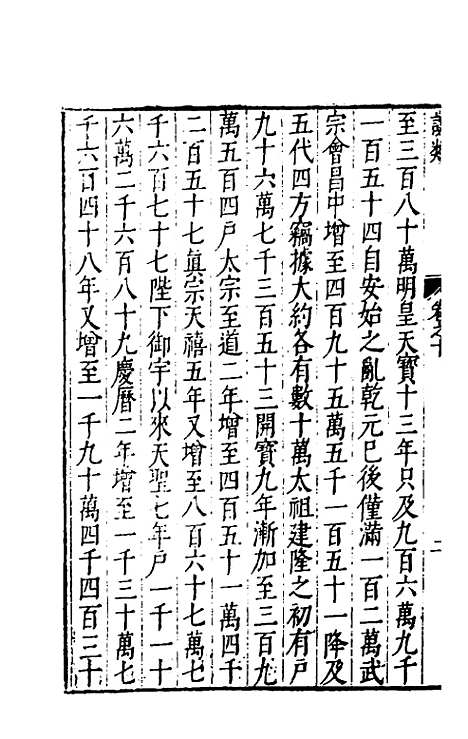 至三百八十萬明皇天寶十三年只及九百六萬九千
一百五十四自安始之亂乾元已後僅滿一百二萬武
宗會昌中增至四百九十五萬五千一百五十一降及
五代四方竊據大約各有數十萬太祖建隆之初有戸
九十六萬七千三百五十三開寶九年漸加至三百九
萬五百四戸太宗至道二年增至四百五十一萬四千
二百五十七眞宗天禧五年又增至八百六十七萬七
千六百七十七陛下御宇以來天聖七年戸一千一十
六萬二千六百八十九慶曆二年增至一千三十萬七
千六百四十八年又增至一千九十萬四千四百三十